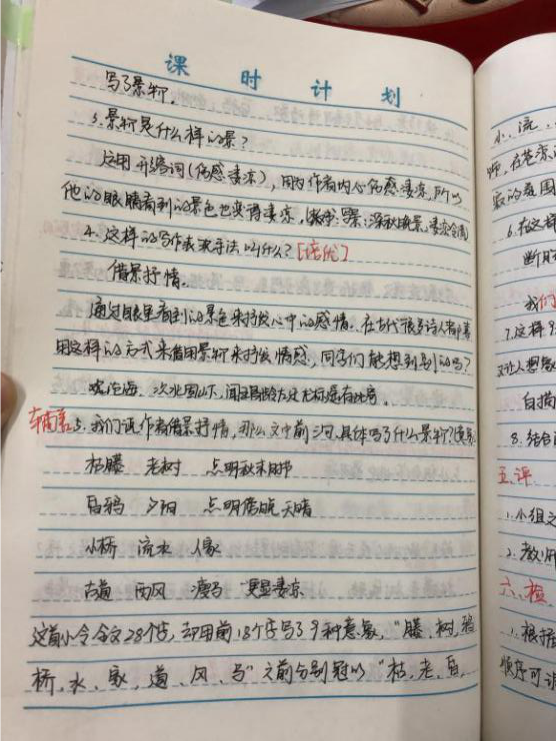 课时计划
写了景物。
3.景物是什么样的景?
运用形容词(伤感凄凉),因为作者内心伤感凄凉,所以
他的眼睛看到的景色也变得凄凉,
4.这样的写作表达手法叫什么?[培优]
借景抒情。
通过眼里看到的景色来抒发心中的感情。在古代很多诗人都喜
用这样的方式来借用景物来抒发情感,同学们能想到别的吗?
观沧海、次北固山下、闻王昌龄左迁龙标遥有此寄。
辅差5.我们说作者借景抒情,那么文中前三句,具体写了什么景物?(意象)
枯藤 老树 点明秋末时节
昏鸦 夕阳 点明傍晚天晴
小桥 流水 人家
古道 西风 瘦马 更显凄凉
这首小令全文28个字,却用前18个字写了9种意象,“藤、树、鸦
桥、水、家、道、风、马”之前分别冠以“枯、老、昏、
小、流、
师,在苍凉
6.在这样
断肠
我们
7.这样
又让人想象
白描
8.结合
五.评
1.小组
2.教师
六、检
1.根据
顺序可调